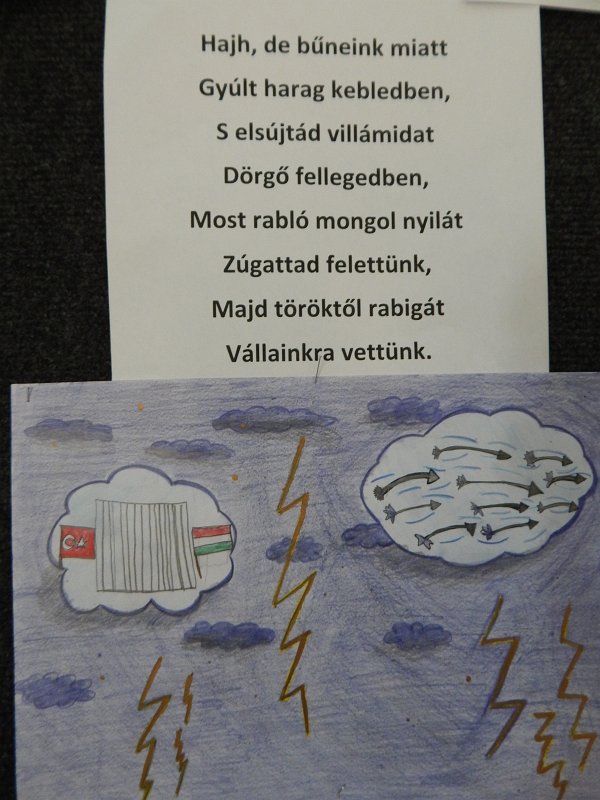 Hajh, de bűneink miatt
Gyúlt harag kebledben,
S elsújtád villámidat
Dörgő fellegedben,
Most rabló mongol nyilát
Zúgattad felettünk,
Majd töröktől rabigát
Vállainkra vettünk.